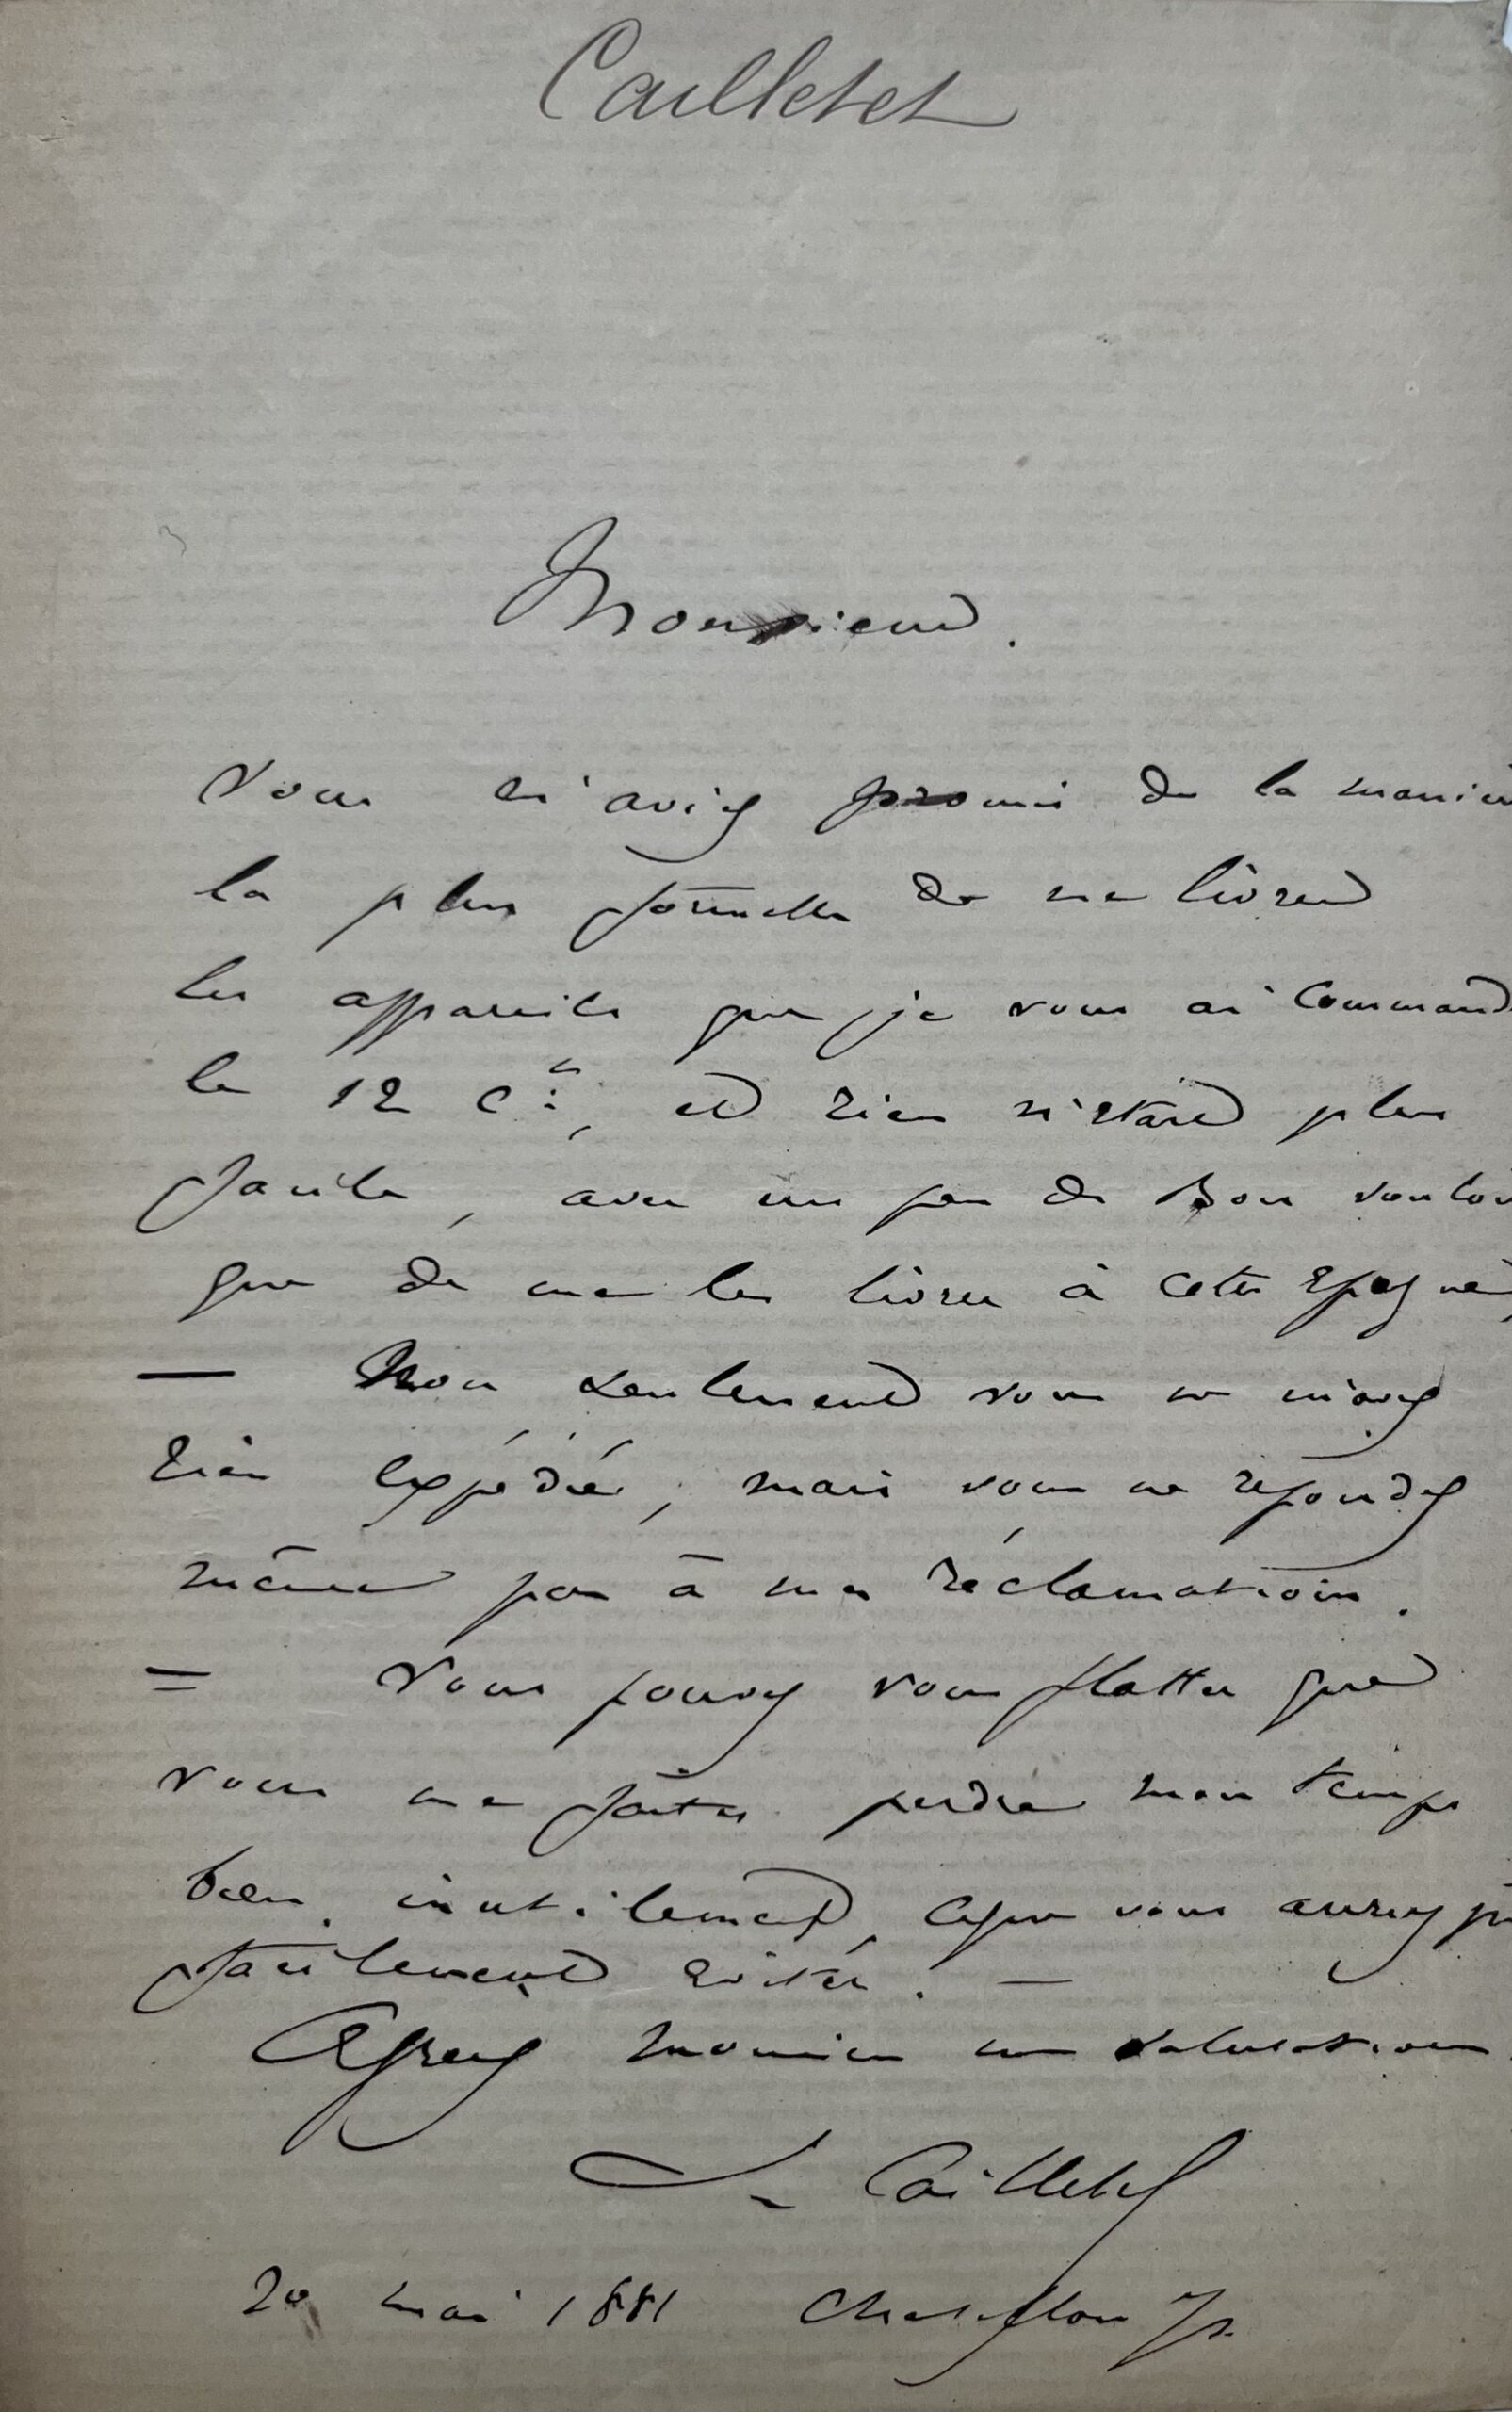 Cailletet
Monsieur.
Vous m'aviez promis de la maniè
la plus formelle de me livrer
les appareils que je vous ai command
le 12 ct, et rien n'était plus
facile, avec un peu de Bon voulo
que de me les livrer à cette époque,
— Non seulement vous ne m'avez
rien expédié, mais vous ne répondez
même pas à ma réclamation.
= Vous pouvez vous flatter que
vous me faites perdre mon temps
bien inutilement, ce que vous auriez pu
facilement éviter. —
Agréez monsieur mes salutations.
L. Cailletet
20 mai 1881 Chatillon s/s.